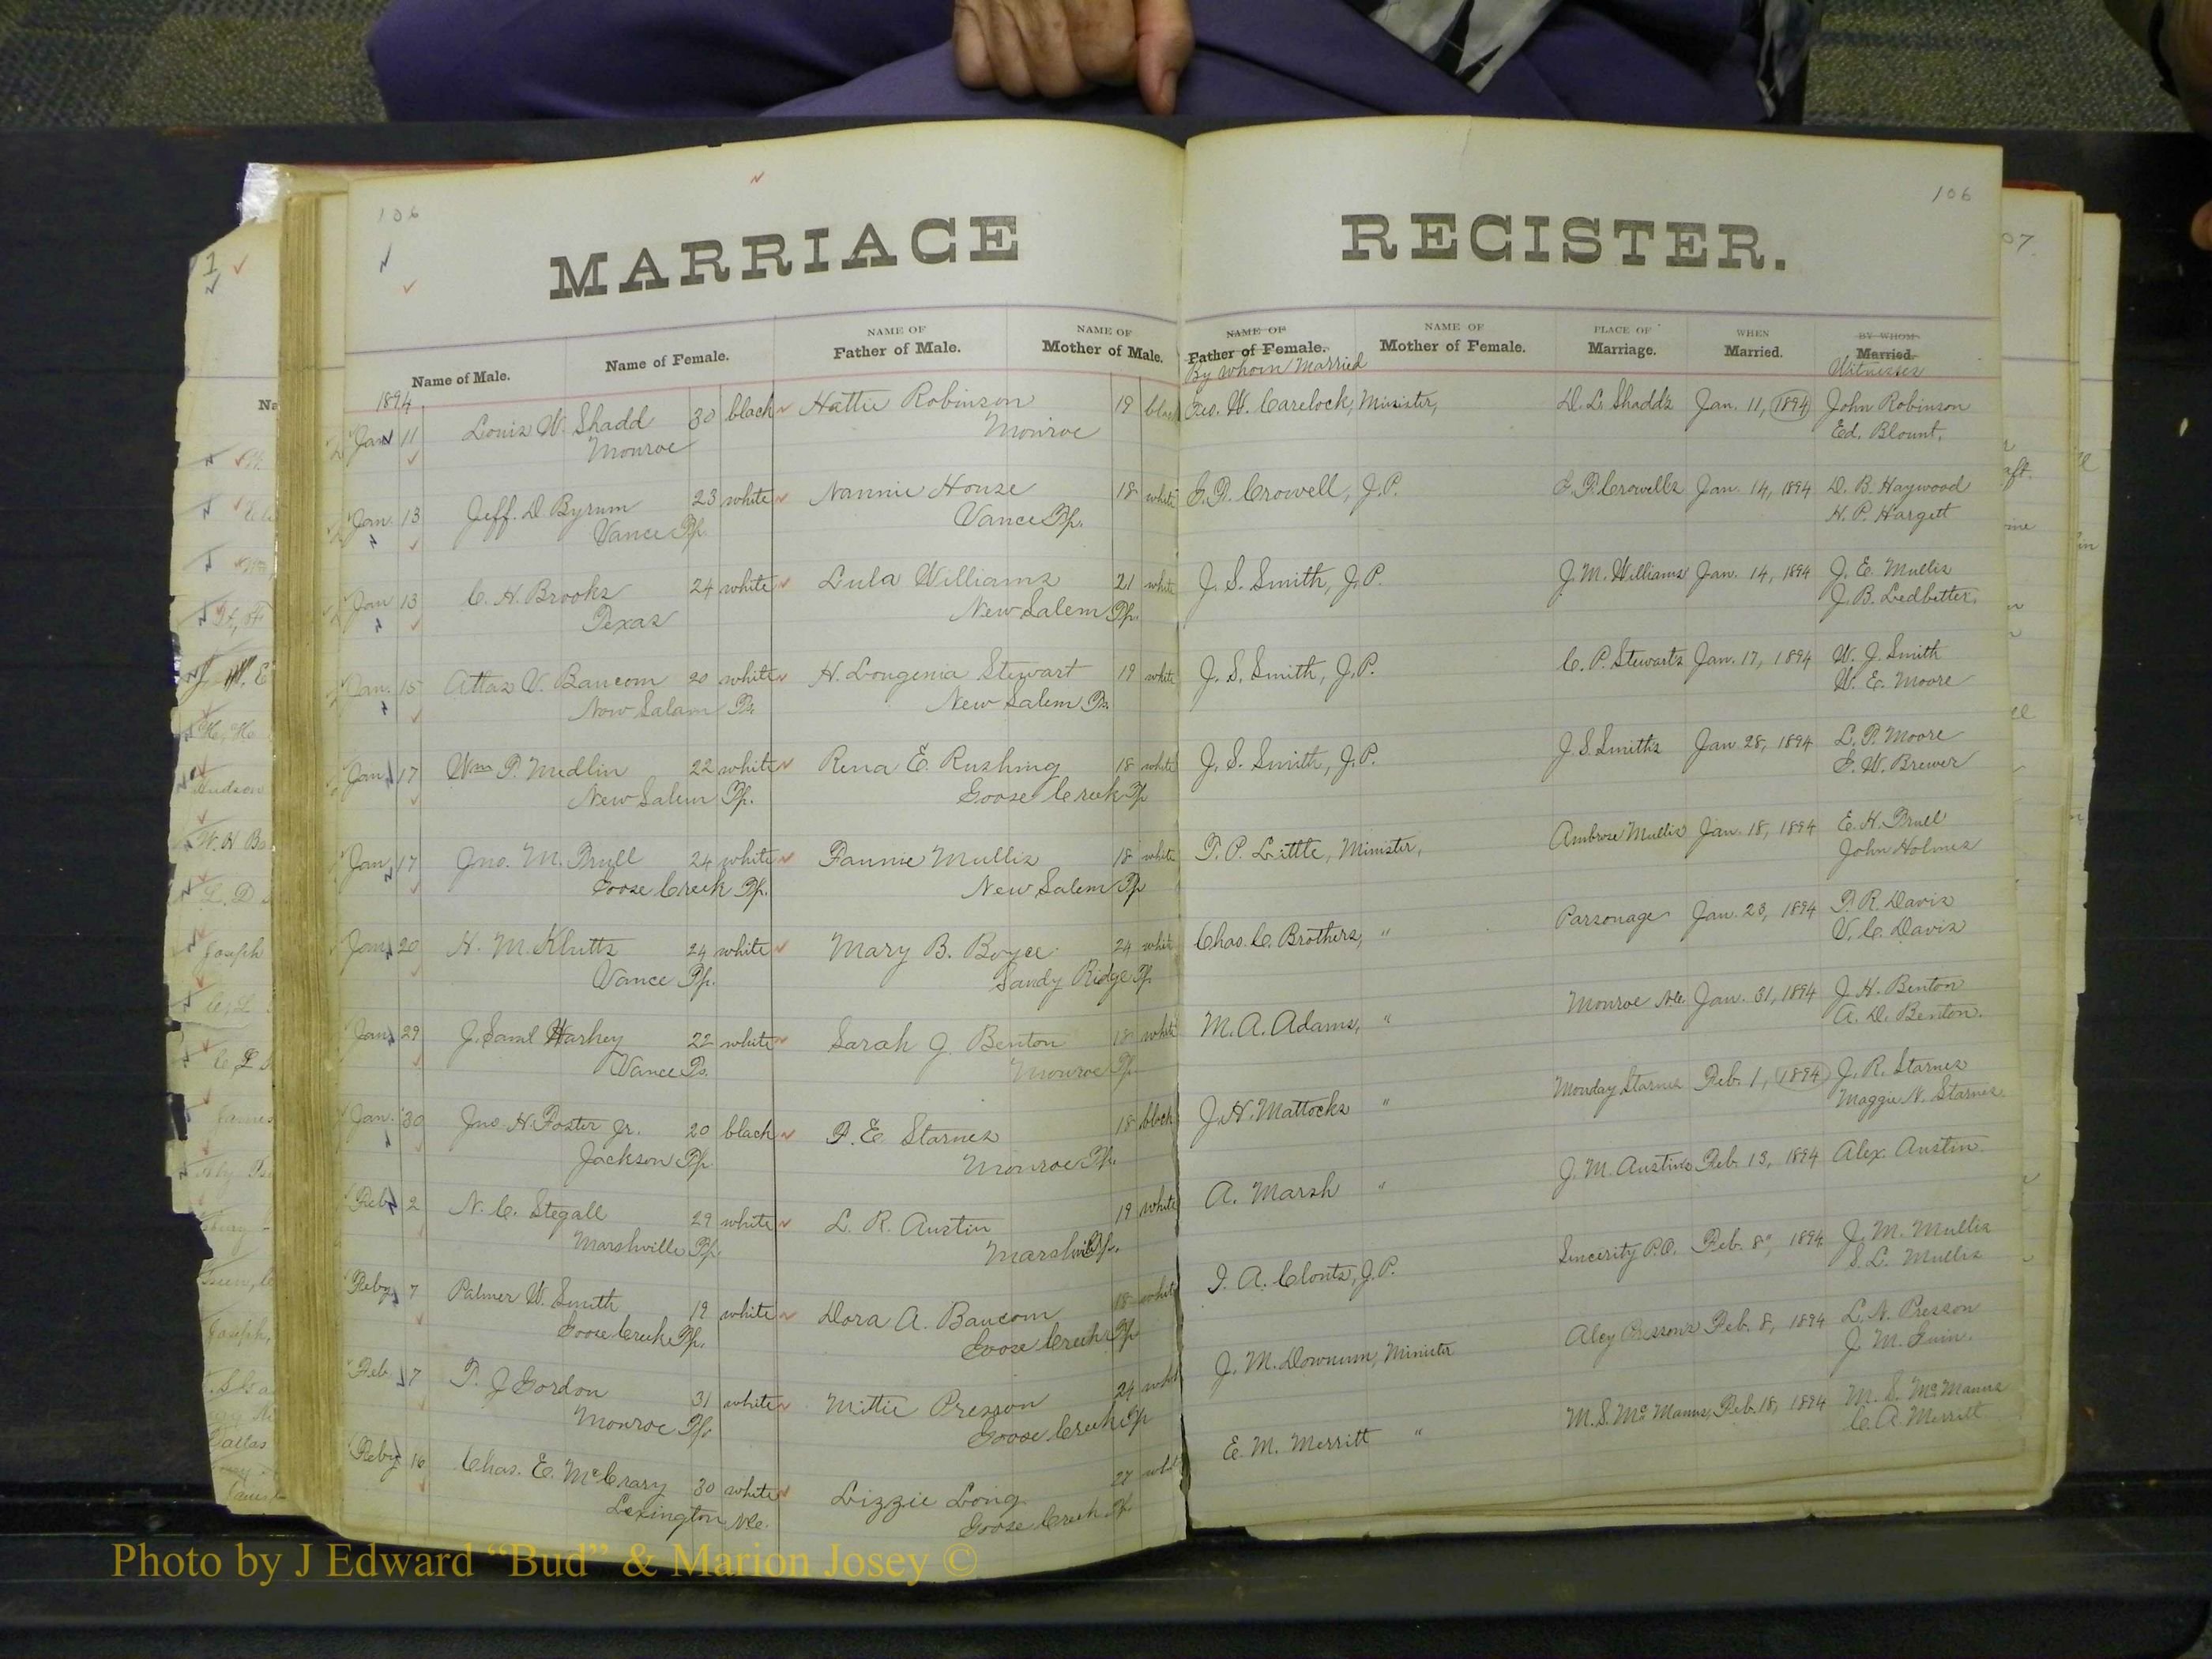 106
106
MARRIAGE REGISTER.
Name of Male.
Name of Female.
NAME OF
Father of Male.
NAME OF
Mother of Male.
NAME OF
Father of Female.
By Whom Married
NAME OF
Mother of Female.
PLACE OF
Marriage.
WHEN
Married.
BY WHOM
Married.
Witnesses
1894
Jan 11 Louis W. Shadd 30 black Hattie Robinson 19 black Geo. W. Carelock, Minister, D. L. Shadd's Jan. 11, 1894 John Robinson
Monroe Monroe Ed. Blount.
Jan. 13 Jeff. D Byrum 23 white Nannie House 18 white G. D. Crowell, J.P. G. D. Crowells Jan. 14, 1894 D. B. Haywood
Vance Tp. Vance Tp. H. P. Hargett
Jan 13 C. H. Brooks 24 white Lula Williams 21 white J. S. Smith, J.P. J. M. Williams Jan. 14, 1894 J. E. Mullis
Texas New Salem Tp. J. B. Ledbetter.
Jan. 15 Attas V. Baucom 20 white H. Lougenia Stewart 19 white J. S. Smith, J.P. C. P. Stewarts Jan. 17, 1894 W. J. Smith
New Salem Tp. New Salem Tp. W. E. Moore
Jan 17 Wm P. Medlin 22 white Rena E. Rushing 18 white J. S. Smith, J.P. J. S. Smiths Jan 28, 1894 L. P. Moore
New Salem Tp. Goose Creek Tp G. W. Brewer
Jan. 17 Jno. M. Prull 24 white Fannie Mullis 18 white T. P. Little, Minister, Ambrose Mullis Jan. 18, 1894 E. H. Prull
Goose Creek Tp. New Salem Tp John Holmes
Jan 20 H. M. Klutts 24 white Mary B. Boyce 24 white Chas. C. Brothers, " Parsonage Jan. 23, 1894 T. R. Davis
Vance Tp. Sandy Ridge Tp V. C. Davis
Jan 29 J. Saml Harkey 22 white Sarah J. Benton 18 white M. A. Adams, " Monroe N.C. Jan. 31, 1894 J. H. Benton
Vance Tp. Monroe Tp. A. D. Benton.
Jan. 30 Jno. H. Foster Jr. 20 black P. E. Starnes 18 black J. H. Mattocks " Monday Starnes Feb. 1, 1894 J. R. Starnes
Jackson Tp. Monroe Tp. Maggie N. Starnes
Feb. 2 N. C. Stegall 29 white L. R. Austin 19 white A. Marsh " J. M. Austins Feb. 13, 1894 Alex. Austin
Marshville Tp. Marshville Tp.
Feby 7 Palmer W. Smith 19 white Dora A. Baucom 18 white I. A. Clontz, J.P. Sincerity P.O. Feb. 8", 1894 J. M. Mullis
Goose Creek Tp. Goose Creek Tp S. L. Mullis
Feb. 7 T. J Gordon 31 white Mittie Presson 24 white J. M. Downum, Minister Alcy Pressons Feb. 8, 1894 L. N. Presson
Monroe Tp. Goose Creek Tp J. M. Guin.
Feby 16 Chas. E. McCrary 30 white Lizzie Long 27 white E. M. Merritt " M. S. McManus, Feb. 18, 1894 M. S. McManus
Lexington N.C. Goose Creek Tp. C. A. Merritt
Photo by J Edward “Bud” & Marion Josey ©